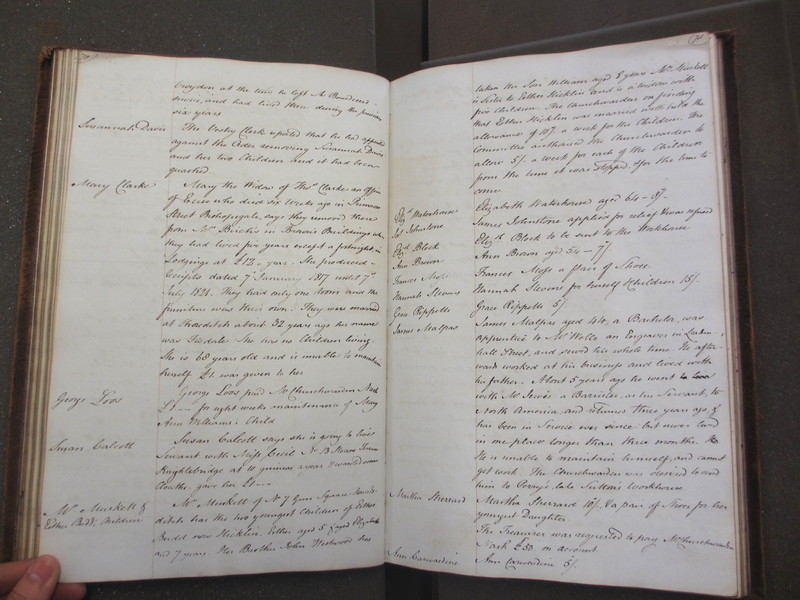 Croydon at the time he left Mr
service, and had lived there during the previous
six years
Susannah Davis
The Vestry Clerk reported that he had appealed
against the Order removing Susannah Davis
and her two Children and it had been
quashed
Mary Clarke
Mary the Widow of Thos. Clarke an Officer
of Excise who died six weeks ago in Primrose
Street Bishopsgate, says they removed there
from Mr Buildings where
they had lived five years except a fortnight in
Lodgings at £12 a year. She produced
Receipts dated 7 January 1817 until 7th
July 1821. They had only one room and the
furniture was their own. They were married
at Shoreditch about 32 years ago her name
was She has no Children living.
She is 68 years old and is unable to maintain
herself £1. was given to her
George Loos
George Loos paid Mr Churchwarden Nash
£1 for eight weeks maintenance of Mary
Ann Williams's Child
Susan Calcott
Susan Calcott says she is going to live
Servant with Miss Cecil No 13
Knightsbridge at 10 guineas a year & wanted some
Cloaths, gave her £1
Mr Muskett &
Esther Budd's Children
Mr Muskett of No 7 Gun Square Hounds-
ditch has the two youngest Children of Esther
Budd now Hicklin, Esther aged 5 & Elizabeth
and 7 years Her Brother John Westwood has
taken the Son William aged 8 years Mrs Muskett
is Sister to Esther Hicklin and is a widow with
five Children. The Churchwardens on finding
that Esther Hicklin was married withheld the
allowance of 10/. a week for the Children. The
Committee authorised the Churchwarden to
allow 5/. a week for each of the Children
from the time it was stopped & for the time to
come
Elizth Waterhouse
Elizabeth Waterhouse aged 64 -
Jas Johnstone
James Johnstone applied for relief & was refused
Elizth Block
Elizth Block to be sent to the Workhouse
Ann Brown
Ann Brown aged 54 - 7/.
Frances Moss
Frances Moss a pair of Shoes.
Hannah Stevens
Hannah Stevens for herself & children 15/.
Grace Rippetts
Grace Rippetts 5/.
James Malpas
James Malpas aged 44, a Bachelor, was
apprentice to Mr Wells an Engraver in Leaden-
hall Street, and served his whole time. He after-
wards worked at his business and lived with
his father. About 5 years ago he went
with Mr Jewis a Barrister, as his Servant, to
North America, and returned three years ago, &
has been in Service ever since; but never lived
in one place longer than three months.
He is unable to maintain himself, and cannot
get work. The Churchwarden was desired to send
him to Perry's late Sutton's Workhouse
Martha Sherrard
Martha Sherrard 10/. & a pair of Shoes for her
youngest Daughter
The Treasurer was requested to pay Mr Churchwarden
Nash £50 on account
Ann Carwardine
Ann Carwardine 5/.